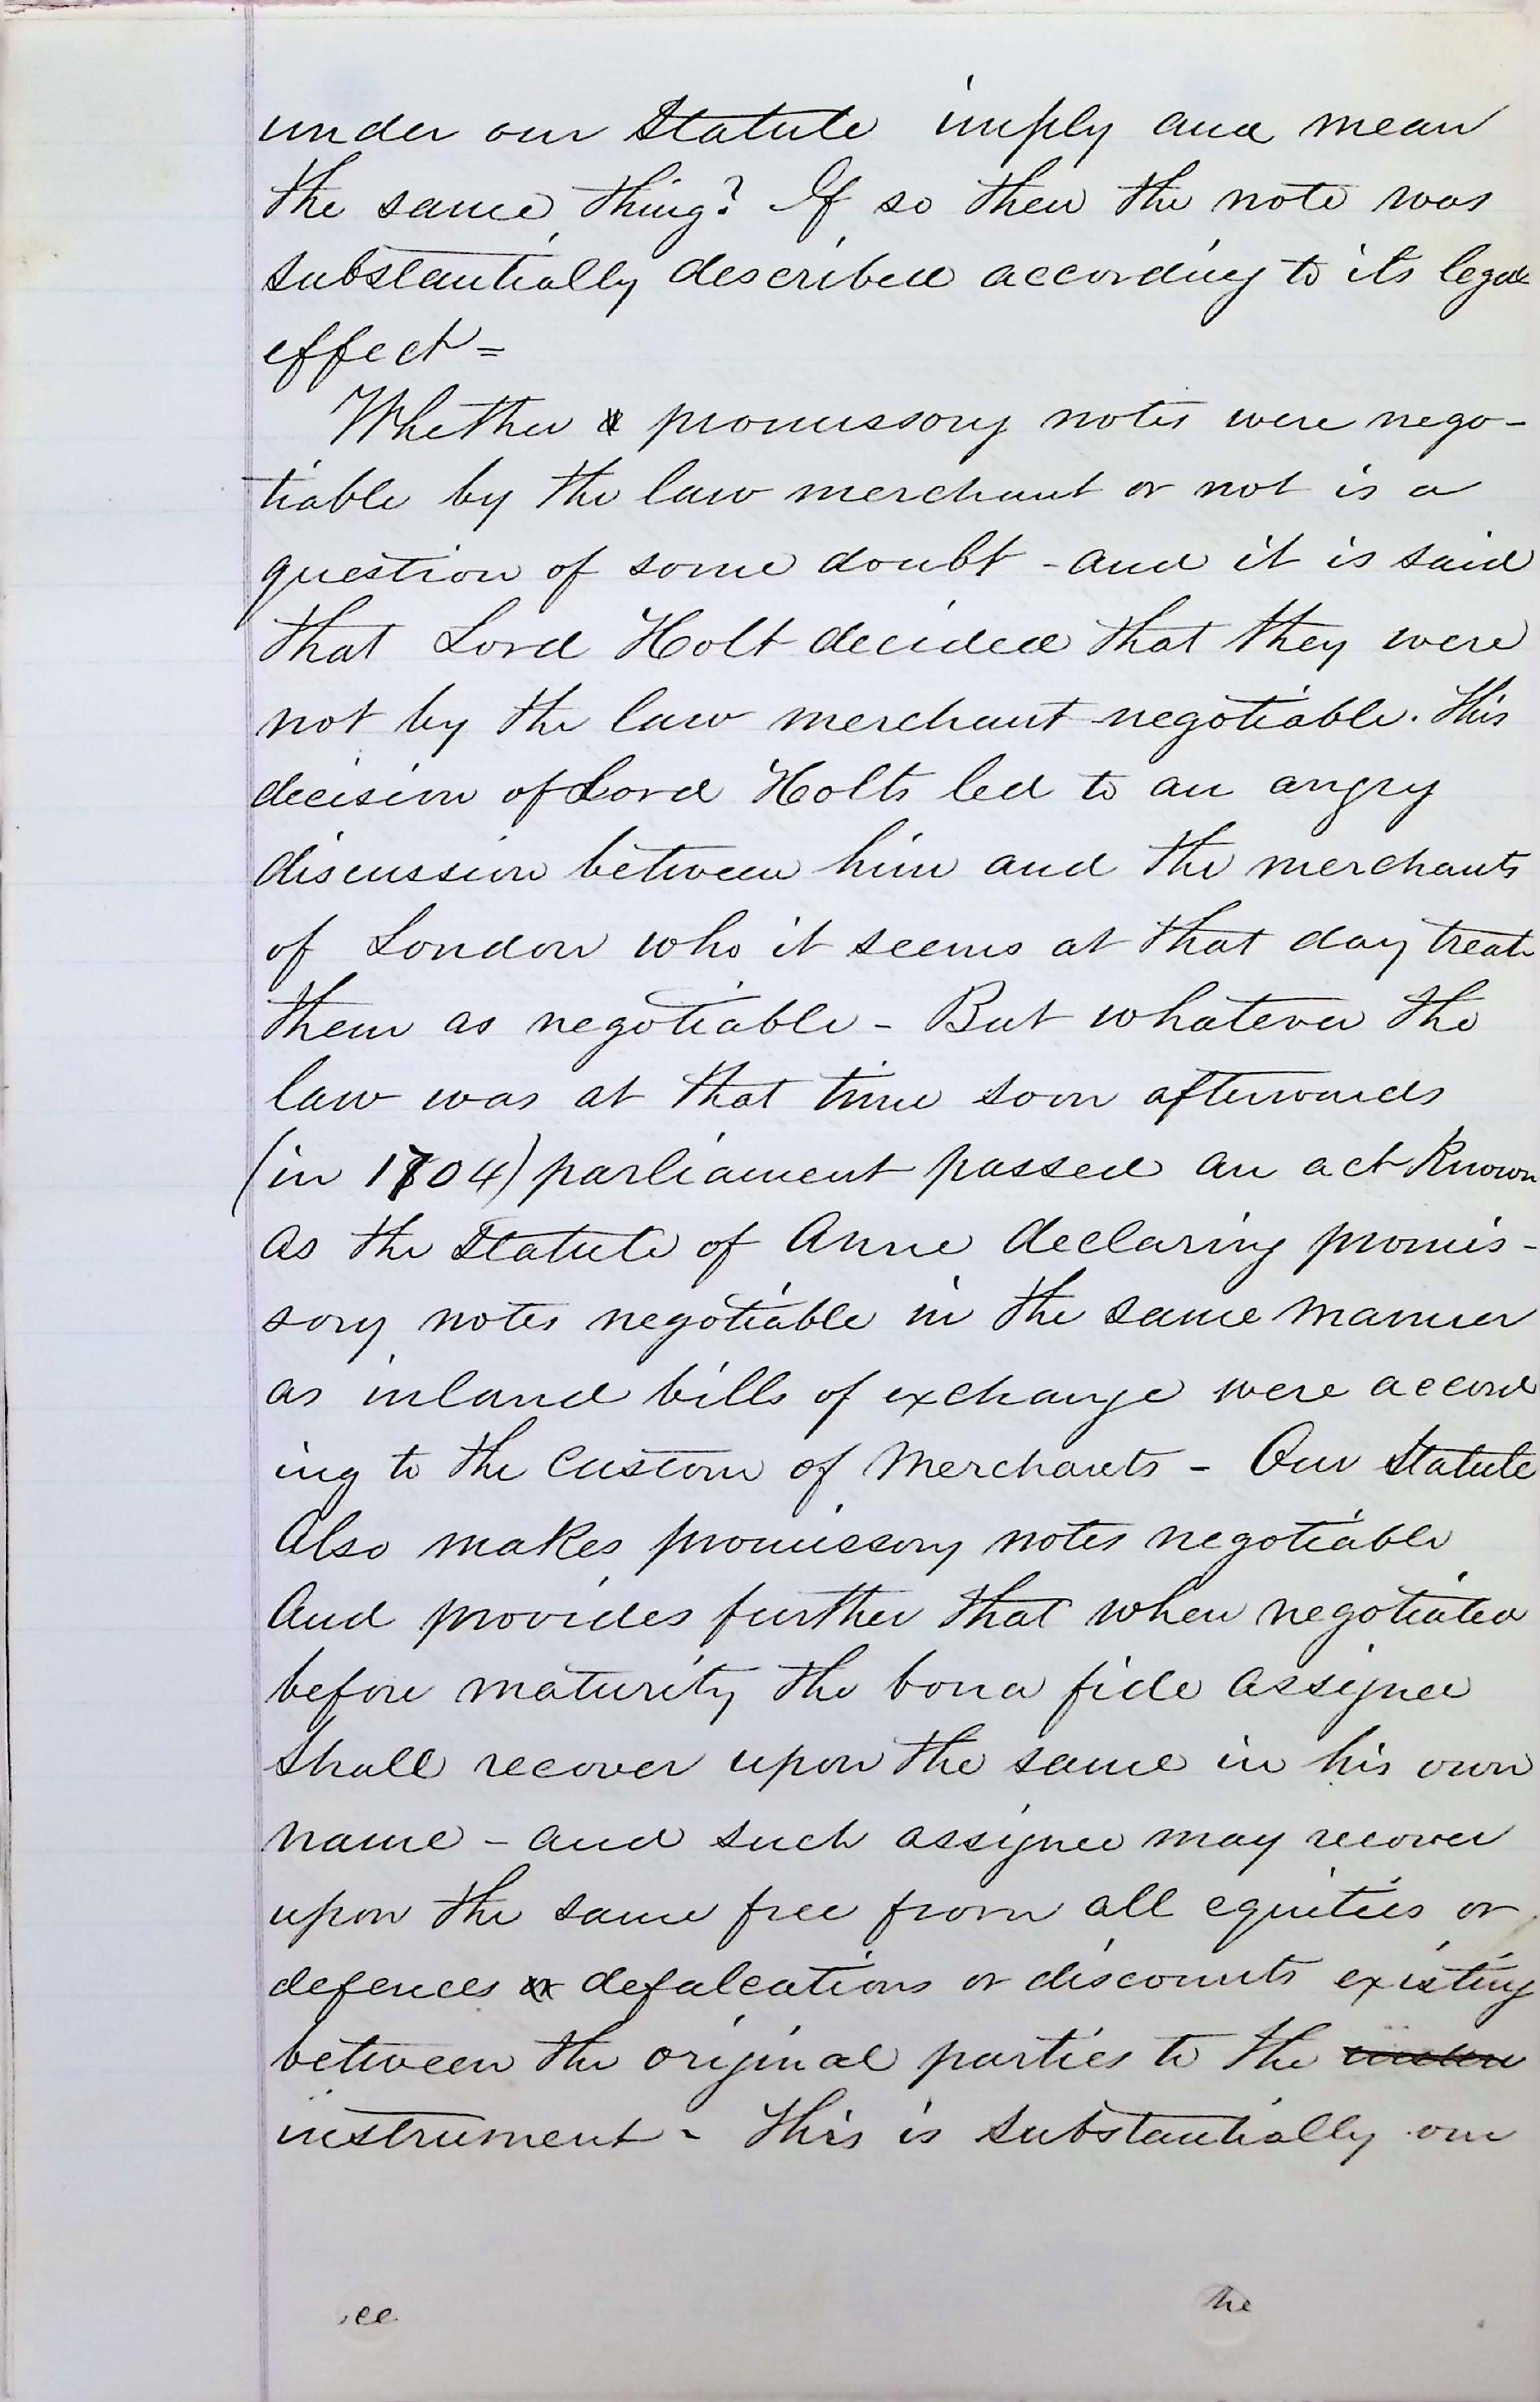 under our Statute imply and mean
the same thing? If so then the note was
substantially described according to its legal
effect =
Whether promissory notes were nego-
tiable by the law merchant or not is a
question of some doubt - and it is said
that Lord Holt decided that they were
not by the law merchant negotiable. This
decision of Lord Holts led to an angry
discussion between him and the merchants
of London who it seems at that day treat
them as negotiable - But whatever the
law was at that time soon afterwards
(in 1704) parliament passed an act known
as the Statute of Anne declaring promis-
sory notes negotiable in the same manner
as inland bills of exchange were accord
ing to the custom of Merchants - Our Statute
Also makes promissory notes negotiable
And provides further that when negotiated
before maturity the bona fide assignee
shall recover upon the same in his own
name - and such assignee may recover
upon the same free from all equities or
defences or defalcations or discounts existing
between the original parties to the
instrument - This is substantially our
ee the